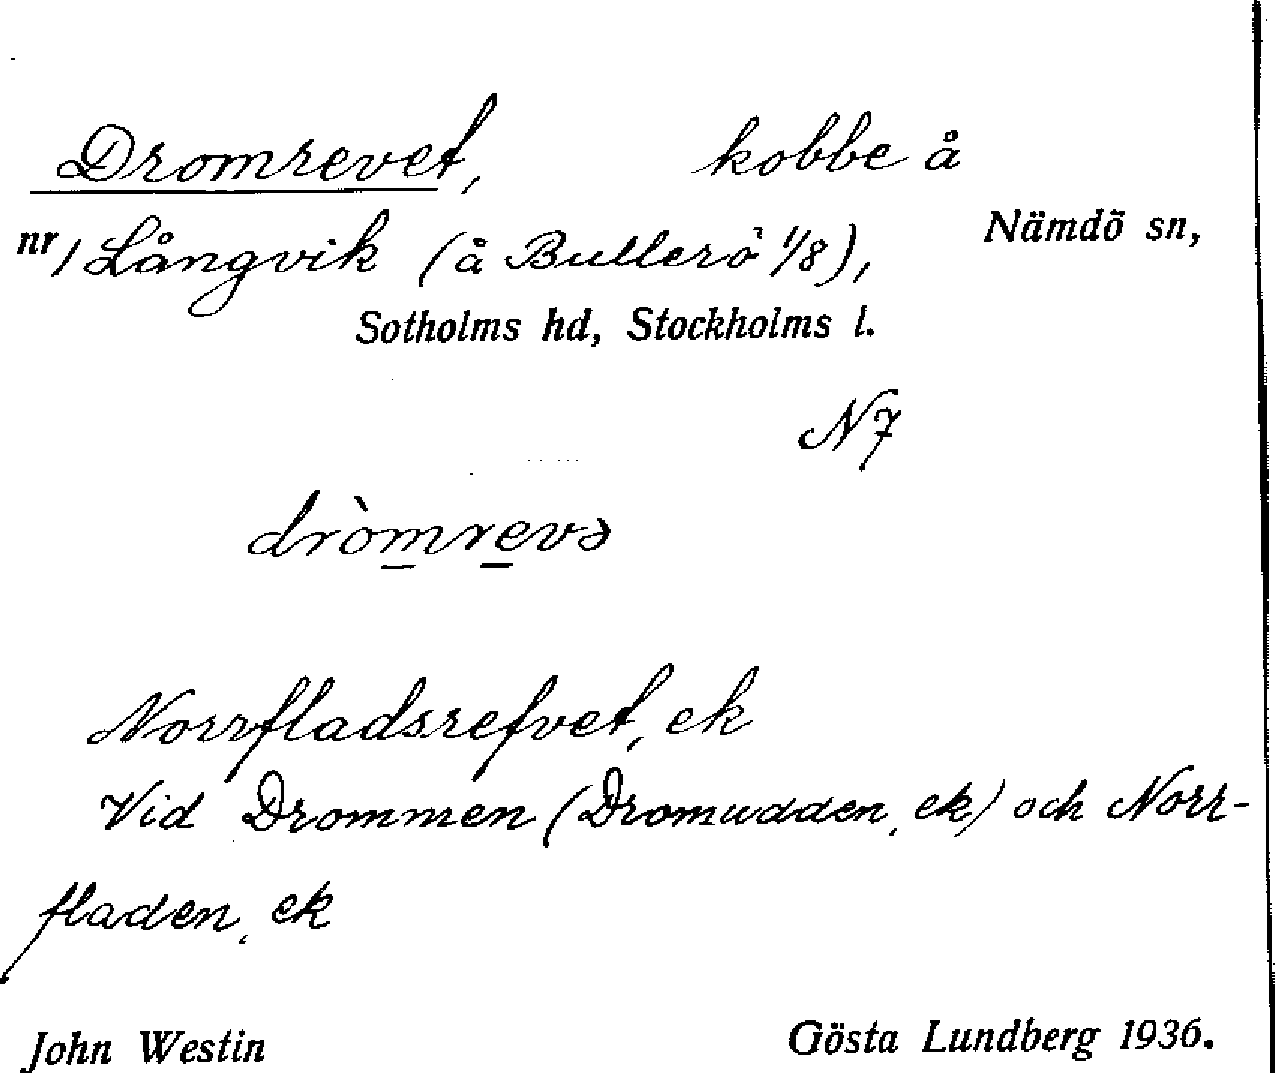 Dromrevet, kobbe å
nr/ Långvik (å Bullerö 1/8), Nämdö sn,
Sotholms hd, Stockholms l.
N7
dròmrevə
Norrfladsrefvet, ek
Vid Drommen (Dromudden, ek) och Norr-
fladen, ek
John Westin Gösta Lundberg 1936.